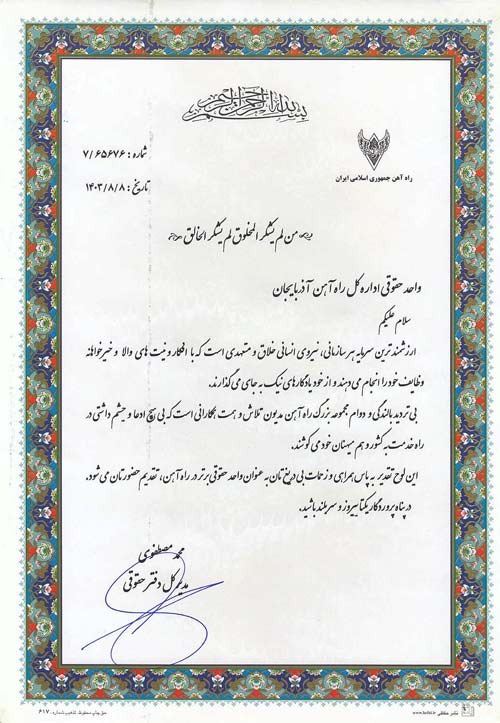 بسم الله الرحمن الرحیم
راه آهن جمهوری اسلامی ایران
شماره : ۷/۶۵۶۷۶
تاریخ : ۱۴۰۳/۸/۸
من لم یشکر المخلوق لم یشکر الخالق
واحد حقوقی اداره کل راه آهن آذربایجان
سلام علیکم
ارزشمندترین سرمایه هر سازمانی، نیروی انسانی خلاق و متعهدی است که با افکار و نیت های والا و خیرخواهانه
وظایف خود را انجام می دهند و از خود یادگارهای نیک به جای می گذارند.
بی تردید بالندگی و دوام مجموعه بزرگ راه آهن مدیون تلاش و همت همکارانی است که بی هیچ ادعا و چشم داشتی در
راه خدمت به کشور و هم میهنان خود می کوشند.
این لوح تقدیر به پاس همراهی و زحمات بی دریغ تان به عنوان واحد حقوقی برتر در راه آهن، تقدیم حضورتان می شود.
در پناه پروردگار یکتا پیروز و سربلند باشید.
محمد مصطفوی
مدیر کل دفتر حقوقی
حق چاپ محفوظ. تذهیب شماره: ۶۱۷